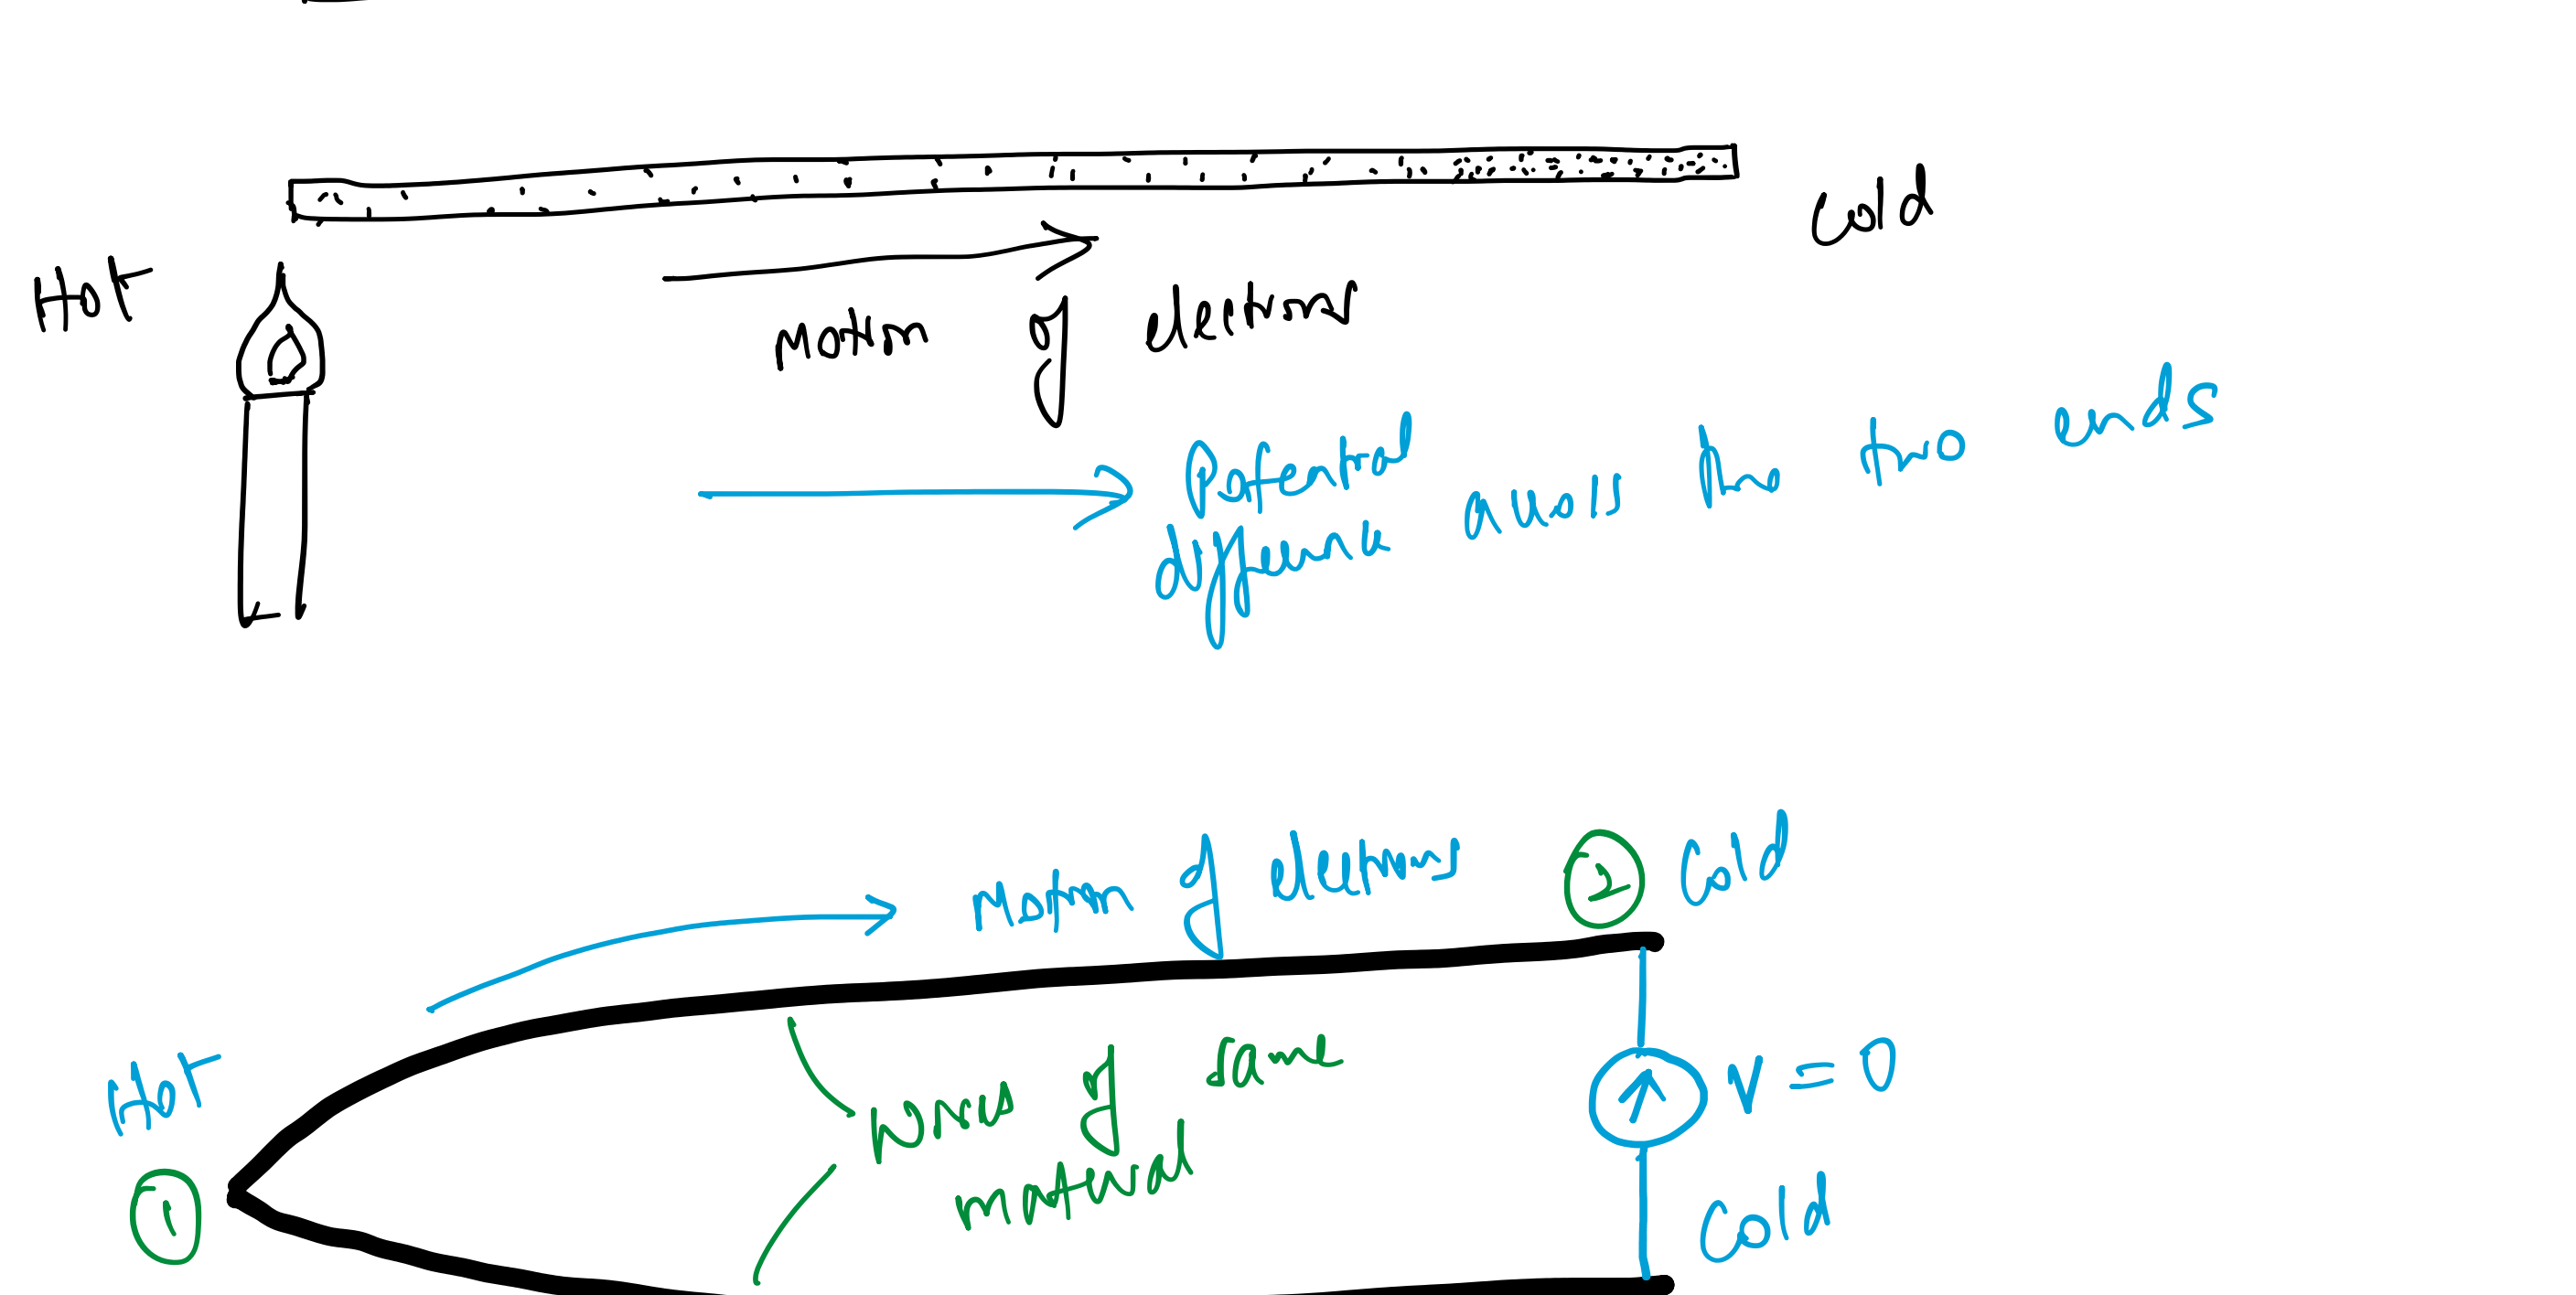 Cold
Hot
Motion of electrons
Potential
difference across the two ends
Motion of electrons
② Cold
Hot
Wires of same
material
V = 0
①
Cold